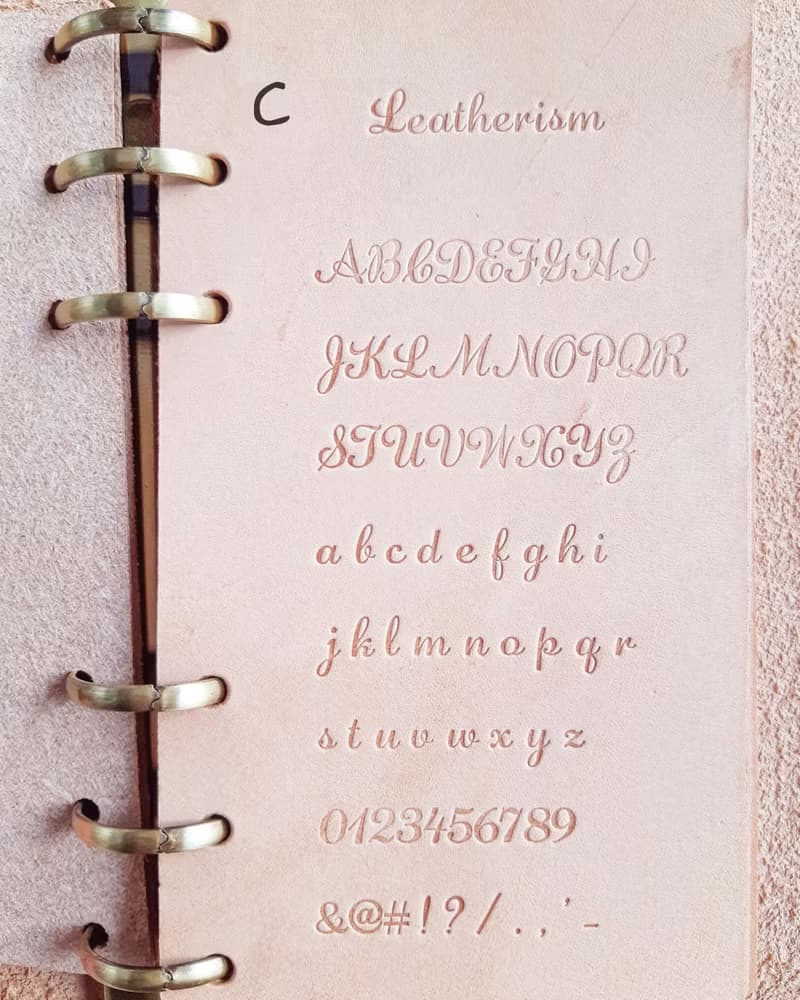 C Leatherism
ABCDEFGHI
JKLMNOPQR
STUVWXYZ
a b c d e f g h i
j k l m n o p q r
s t u v w x y z
0123456789
&@#!?/.,'-